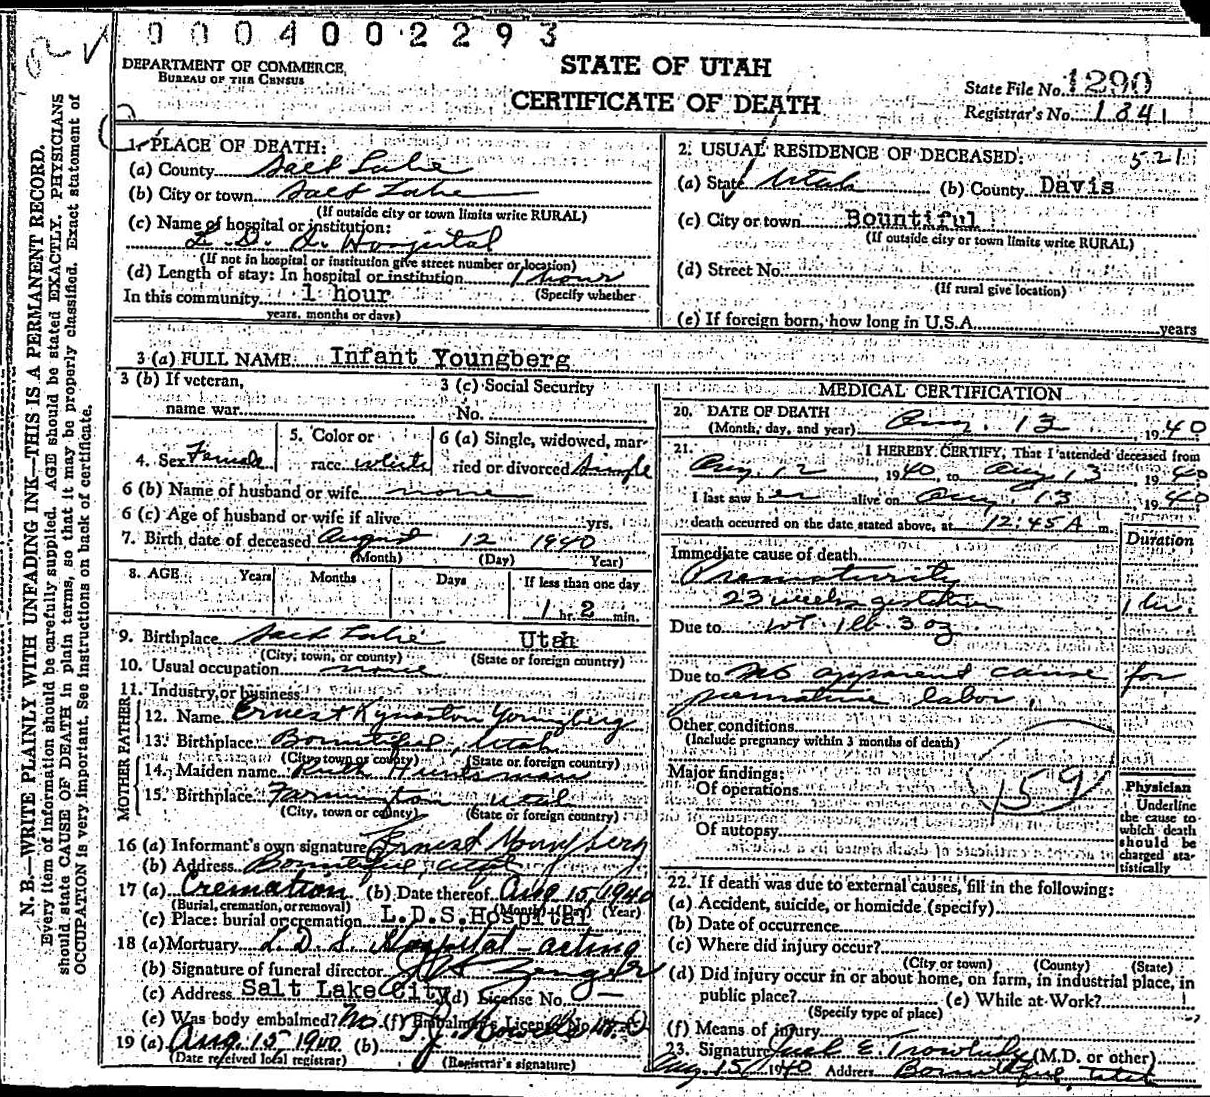 0004002293
DEPARTMENT OF COMMERCE
BUREAU OF THE CENSUS
STATE OF UTAH
CERTIFICATE OF DEATH
State File No. 1290
Registrar's No. 1841
N. B.—WRITE PLAINLY WITH UNFADING INK—THIS IS A PERMANENT RECORD.
Every item of information should be carefully supplied. AGE should be stated EXACTLY. PHYSICIANS
should state CAUSE OF DEATH in plain terms, so that it may be properly classified. Exact statement of
OCCUPATION is very important. See instructions on back of certificate.
1. PLACE OF DEATH:
(a) County Salt Lake
(b) City or town Salt Lake
(If outside city or town limits write RURAL)
(c) Name of hospital or institution:
L. D. S. Hospital
(If not in hospital or institution give street number or location)
(d) Length of stay: In hospital or institution 1 hour
In this community 1 hour (Specify whether
years, months or days)
2. USUAL RESIDENCE OF DECEASED: 521
(a) State Utah (b) County Davis
(c) City or town Bountiful
(If outside city or town limits write RURAL)
(d) Street No.
(If rural give location)
(e) If foreign born, how long in U.S.A. years
3 (a) FULL NAME Infant Youngberg
3 (b) If veteran,
name war
3 (c) Social Security
No.
4. Sex Female
5. Color or
race white
6 (a) Single, widowed, mar-
ried or divorced Single
6 (b) Name of husband or wife none
6 (c) Age of husband or wife if alive yrs.
7. Birth date of deceased August 12 1940
(Month) (Day) Year)
8. AGE Years Months Days If less than one day
1 hr. 2 min.
9. Birthplace Salt Lake Utah
(City, town, or county) (State or foreign country)
10. Usual occupation none
11. Industry or business
FATHER
12. Name Ernest Kynaston Youngberg
13. Birthplace Bountiful, Utah
(City, town or county) (State or foreign country)
MOTHER
14. Maiden name Ruth Huntsman
15. Birthplace Farmington Utah
(City, town or county) (State or foreign country)
16 (a) Informant's own signature Ernest Youngberg
(b) Address Bountiful, Utah
17 (a) Cremation (b) Date thereof Aug 15, 1940
(Burial, cremation, or removal) (Month) (Day) (Year)
(c) Place: burial or cremation L.D.S. Hospital
18 (a) Mortuary L. D. S. Hospital - acting
(b) Signature of funeral director Zenger
(c) Address Salt Lake City (d) License No. —
(e) Was body embalmed? No (f) Embalmer's License No.
19 (a) Aug. 15 1940 (b)
(Date received local registrar) (Registrar's signature)
MEDICAL CERTIFICATION
20. DATE OF DEATH
(Month, day, and year) Aug. 13, 1940
21. I HEREBY CERTIFY, That I attended deceased from
Aug 12, 1940, to Aug 13, 1940
I last saw her alive on Aug 13 1940
death occurred on the date stated above, at 12:45 A m.
Duration
Immediate cause of death
Prematurity
23 weeks gestation 1 hr.
Due to wt 1 lb 3 oz
Due to No apparent cause for
premature labor.
Other conditions
(Include pregnancy within 3 months of death)
Major findings:
Of operations
159
Of autopsy
Physician
Underline
the cause to
which death
should be
charged sta-
tistically
22. If death was due to external causes, fill in the following:
(a) Accident, suicide, or homicide (specify)
(b) Date of occurrence
(c) Where did injury occur?
(City or town) (County) (State)
(d) Did injury occur in or about home, on farm, in industrial place, in
public place? (e) While at Work?
(Specify type of place)
(f) Means of injury
23. Signature E. Trowbridge (M.D. or other)
Aug. 15, 1940 Address Bountiful, Utah